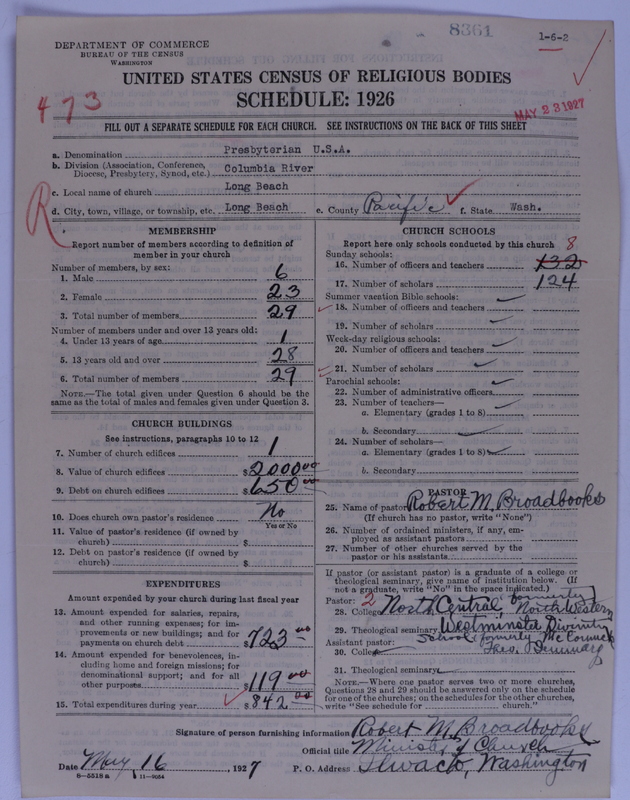 8361
1-6-2
DEPARTMENT OF COMMERCE
BUREAU OF THE CENSUS
WASHINGTON
UNITED STATES CENSUS OF RELIGIOUS BODIES
SCHEDULE: 1926
473
MAY 23 1927
FILL OUT A SEPARATE SCHEDULE FOR EACH CHURCH. SEE INSTRUCTIONS ON THE BACK OF THIS SHEET
a. Denomination Presbyterian U.S.A.
b. Division (Association, Conference, Diocese, Presbytery, Synod, etc.) Columbia River
c. Local name of church Long Beach
R
d. City, town, village, or township, etc. Long Beach e. County Pacific f. State Wash.
MEMBERSHIP
Report number of members according to definition of
member in your church
Number of members, by sex:
1. Male 6
2. Female 23
3. Total number of members 29
Number of members under and over 13 years old:
4. Under 13 years of age 1
5. 13 years old and over 28
6. Total number of members 29
NOTE.—The total given under Question 6 should be the
same as the total of males and females given under Question 3.
CHURCH BUILDINGS
See instructions, paragraphs 10 to 12
7. Number of church edifices 1
8. Value of church edifices $2000 00
9. Debt on church edifices $650 00
10. Does church own pastor's residence No
Yes or No
11. Value of pastor's residence (if owned by
church) $
12. Debt on pastor's residence (if owned by
church) $
EXPENDITURES
Amount expended by your church during last fiscal year
13. Amount expended for salaries, repairs,
and other running expenses; for im-
provements or new buildings; and for
payments on church debt $723 00
14. Amount expended for benevolences, in-
cluding home and foreign missions; for
denominational support; and for all
other purposes $119 00
15. Total expenditures during year $842 00
CHURCH SCHOOLS
Report here only schools conducted by this church 8
Sunday schools:
16. Number of officers and teachers 132
17. Number of scholars 124
Summer vacation Bible schools:
18. Number of officers and teachers
19. Number of scholars
Week-day religious schools:
20. Number of officers and teachers
21. Number of scholars
Parochial schools:
22. Number of administrative officers
23. Number of teachers—
a. Elementary (grades 1 to 8)
b. Secondary
24. Number of scholars—
a. Elementary (grades 1 to 8)
b. Secondary
PASTOR
25. Name of pastor Robert M. Broadbooks
(If church has no pastor, write "None")
26. Number of ordained ministers, if any, em-
ployed as assistant pastors
27. Number of other churches served by the
pastor or his assistants
If pastor (or assistant pastor) is a graduate of a college or
theological seminary, give name of institution below. (If
not a graduate, write "No" in the space indicated.)
Pastor: 2
28. College North Central formerly North Western
29. Theological seminary Westminster Divinity
School formerly McCormick
Theo. Seminary
Assistant pastor:
30. College
31. Theological seminary
NOTE.—Where one pastor serves two or more churches,
Questions 28 and 29 should be answered only on the schedule
for one of the churches; on the schedules for the other churches,
write "See schedule for church."
Signature of person furnishing information Robert M. Broadbooks
Official title Minister of Church
Date May 16, 1927 P. O. Address Ilwaco, Washington
8—5518 a 11—9054